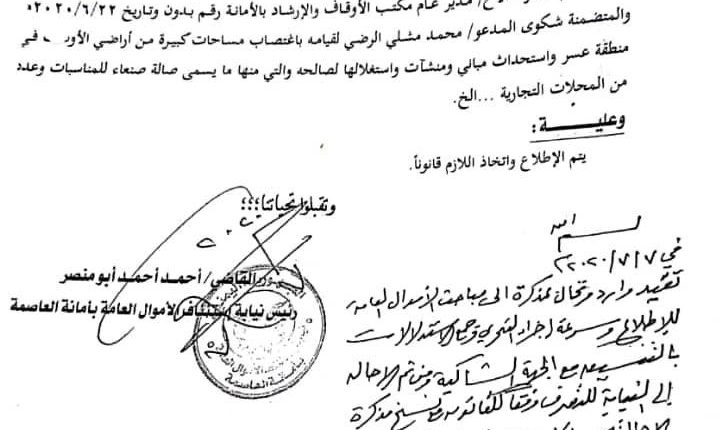 مدير عام مكتب الأوقاف والإرشاد بالأمانة رقم بدون وتاريخ ٢٠٢٠/٦/٢٢
والمتضمنة شكوى المدعو/ محمد مشلي الرضي لقيامه باغتصاب مساحات كبيرة من أراضي في
منطقة عسر واستحداث مباني ومنشآت واستغلالها لصالحه والتي منها ما يسمى صالة صنعاء للمناسبات وعدد
من المحلات التجارية ...الخ.
وعليـــــة:
يتم الإطلاع واتخاذ اللازم قانوناً.
وتقبلوا تحياتنا؛؛؛
القاضي/ أحمد أحمد أبو منصر
رئيس نيابة استئناف الأموال العامة بأمانة العاصمة
بأمانة العاصمة
في ٢٠٢٠/٧/٧
تقيد وارد وتحال بمذكرة الى مباحث الأموال العامة
للإطلاع وسرعة إجراء التحري وجمع الاستدلالات
مع الجهة الشاكية ومن ثم الاحاله
إلى النيابة للتصرف وفقاً للقانون مذكرة